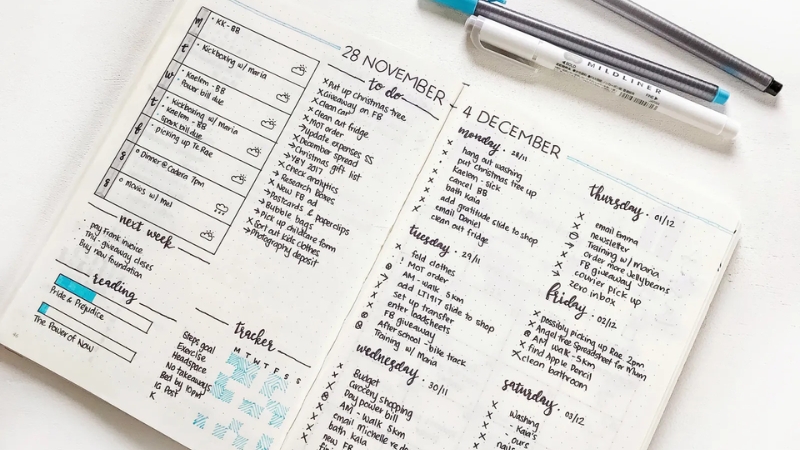 28 NOVEMBER
m
• KK - BB
t
• Kickboxing w/ Maria
w
• Kaelem - BB
Power bill due
t
• Kickboxing w/ Maria
• Kaelem - BB
• Spark bill due
f
• picking up Te Rae
s
Dinner@Cadera 7pm
s
movies w/ Mel
to do
x Put up christmas tree
x Giveaway on FB
x clean car
x clean out fridge
x MOT order
> Update expenses SS
x December spread
> Christmas gift list
> YBY 2017
x Check analytics
> Research Boxes
x New FB ad
> Postcards & paperclips
> Bubble bags
> pick up childcare form
x Sort out kids clothes
> Photography deposit
next week
• pay Frank invoice
• Tray giveaway closes
• Buy new foundation
reading
Pride & Prejudice
The Power of Now
tracker
M T W T F S S
Steps goal
Exercise
Headspace
No takeaways
Bed by 10pm
IG Post
K
4 DECEMBER
monday • 28/11
x hang out washing
x put christmas tree up
x Kaelem - sick
x cancel BB
x bath Kaia
x add gratitude slide to shop
x email Daniel
x clean out fridge
tuesday • 29/11
x fold clothes
x ! MOT order
AM - walk 5km
x add LT1917 slide to shop
x set up transfer
x enter loadsheets
x FB giveaway
After school - bike track
Training w/ Maria
wednesday • 30/11
x Budget
x Grocery shopping
x Day power bill
AM - walk 5km
x email michelle re
x bath kaia
x new FB
thursday • 01/12
x email Emma
x newsletter
Training w/ Maria
> order more Jellybeans
x FB giveaway
x courier pick up
> zero inbox
friday • 02/12
x possibly picking up Rae 2pm
x Angel tree Spreadsheet for mum
AM walk - 5km
x find Apple Pencil
x clean bathroom
saturday • 03/12
x washing
x - Kaia's
x - ours
x nails
MILDLINER